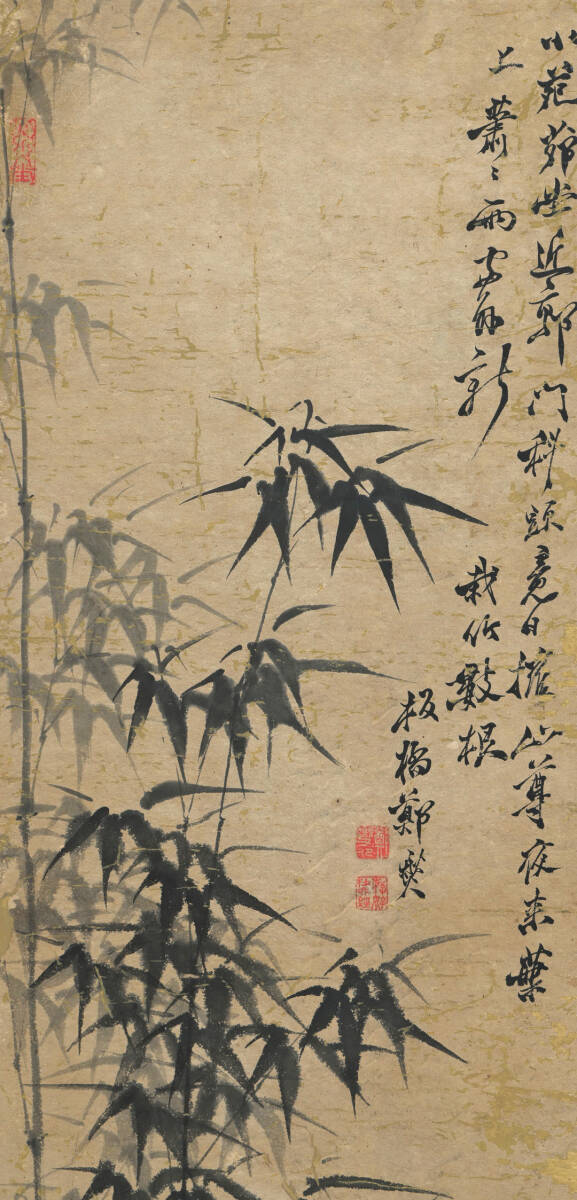 小苑茆堂近郭門科頭竟日擁山尊夜來葉
上蕭〻雨窗外新栽竹數根
板橋鄭燮